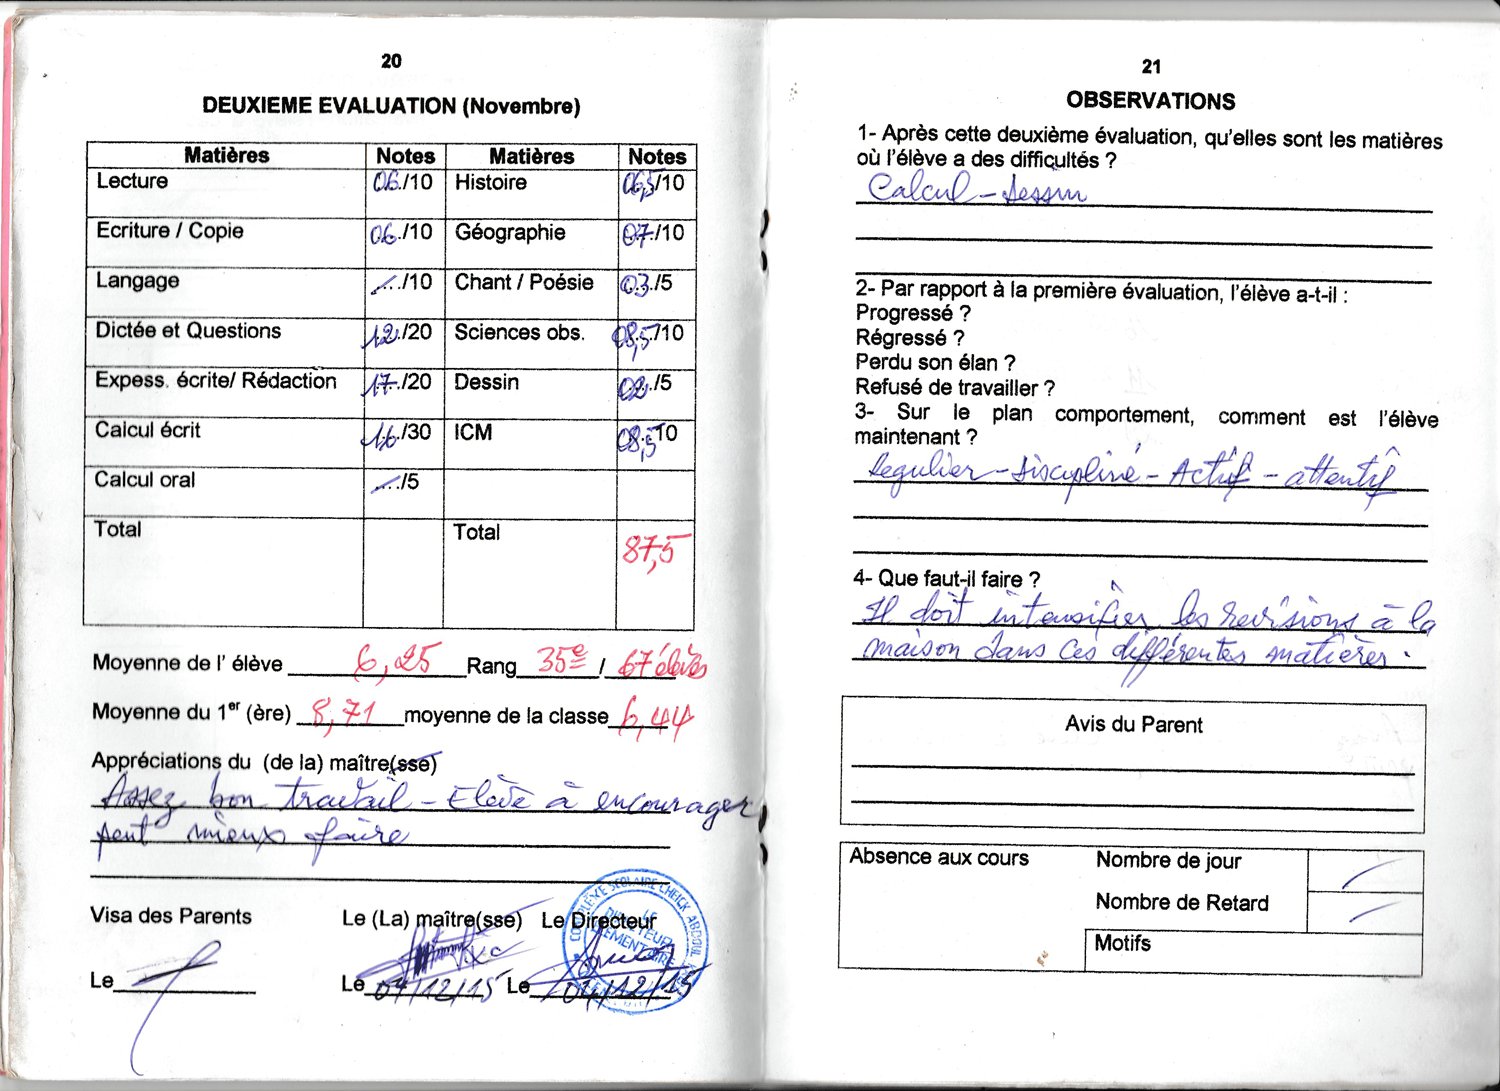 20
DEUXIEME EVALUATION (Novembre)
Matières Notes Matières Notes
Lecture 06/10 Histoire 06,5/10
Ecriture / Copie 06/10 Géographie 07/10
Langage /10 Chant / Poésie 03/5
Dictée et Questions 12/20 Sciences obs. 08,5/10
Expess. écrite/ Rédaction 17/20 Dessin 02/5
Calcul écrit 16/30 ICM 08,5 10
Calcul oral /5
Total Total 87,5
Moyenne de l' élève 6,25 Rang 35e / 67 élèves
Moyenne du 1er (ère) 8,71 moyenne de la classe 6,44
Appréciations du (de la) maître(sse)
Assez bon travail - Elève à encourager
peut mieux faire
Visa des Parents Le (La) maître(sse) Le Directeur
COMPLEXE SCOLAIRE CHEICK ABDOUL
LE
DIRECTEUR
ELEMENTAIRE
Le Le 04/12/15 Le 04/12/15
21
OBSERVATIONS
1- Après cette deuxième évaluation, qu'elles sont les matières
où l'élève a des difficultés ?
Calcul - dessin
2- Par rapport à la première évaluation, l'élève a-t-il :
Progressé ?
Régressé ?
Perdu son élan ?
Refusé de travailler ?
3- Sur le plan comportement, comment est l'élève
maintenant ?
Regulier - Discipliné - Actif - attentif
4- Que faut-il faire ?
Il doit intensifier les revisions à la
maison dans ces différentes matières.
Avis du Parent
Absence aux cours Nombre de jour
Nombre de Retard
Motifs